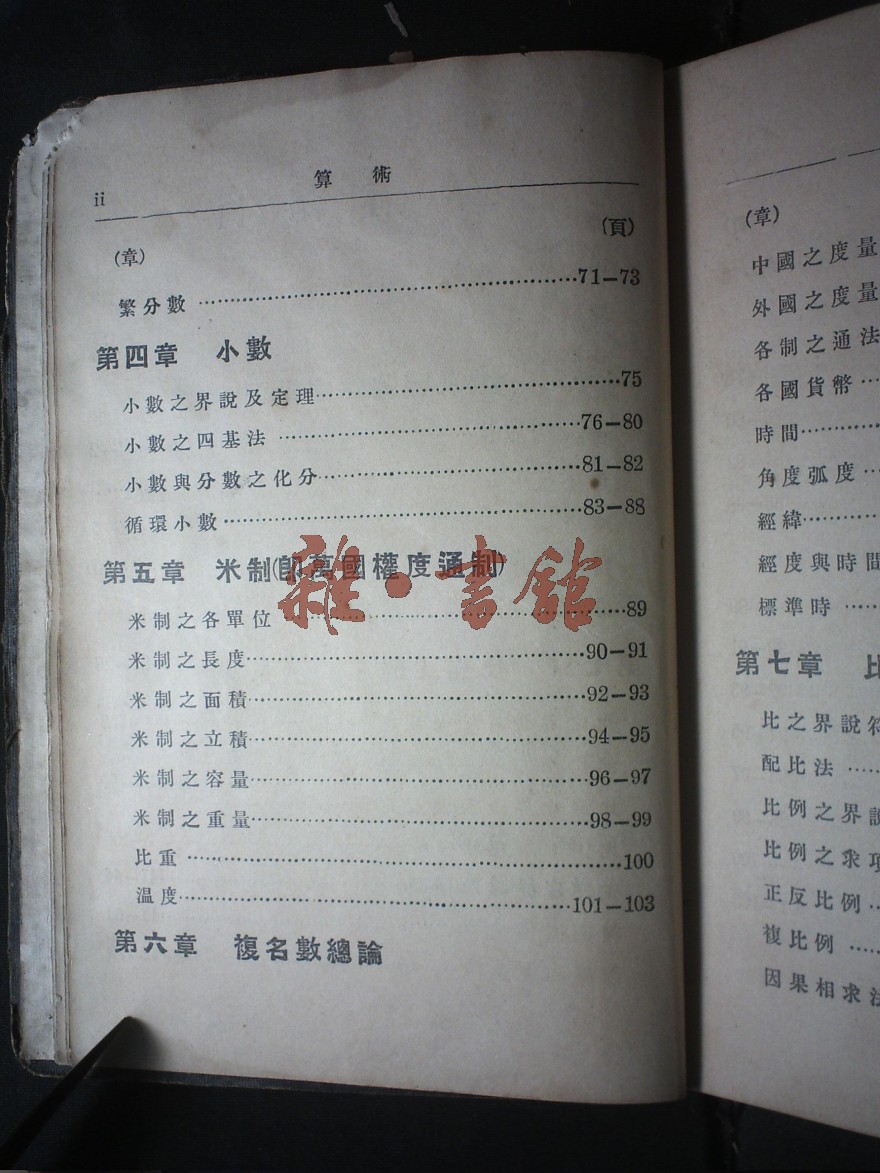 ii 算術
(章) (頁)
繁分數 ……71—73
第四章 小數
小數之界說及定理……75
小數之四基法……76—80
小數與分數之化分……81—82
循環小數……83—88
第五章 米制(卽萬國權度通制)
米制之各單位……89
米制之長度……90—91
米制之面積……92—93
米制之立積……94—95
米制之容量……96—97
米制之重量……98—99
比重……100
溫度……101—103
第六章 複名數總論
雜·書館
(章)
中國之度量
外國之度量
各制之通法
各國貨幣…
時間……
角度弧度…
經緯……
經度與時間
標準時……
第七章 比
比之界說符
配比法……
比例之界說
比例之求項
正反比例…
複比例……
因果相求法